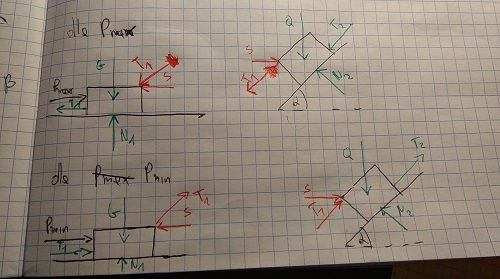 dla Pmax
Q
T2
T1
S
G
S
β
Pmax
T1
T1
N2
α
N1
dla Pmax Pmin
T2
Q
T1
G
S
S
Pmin
T1
N2
T1
N1
α